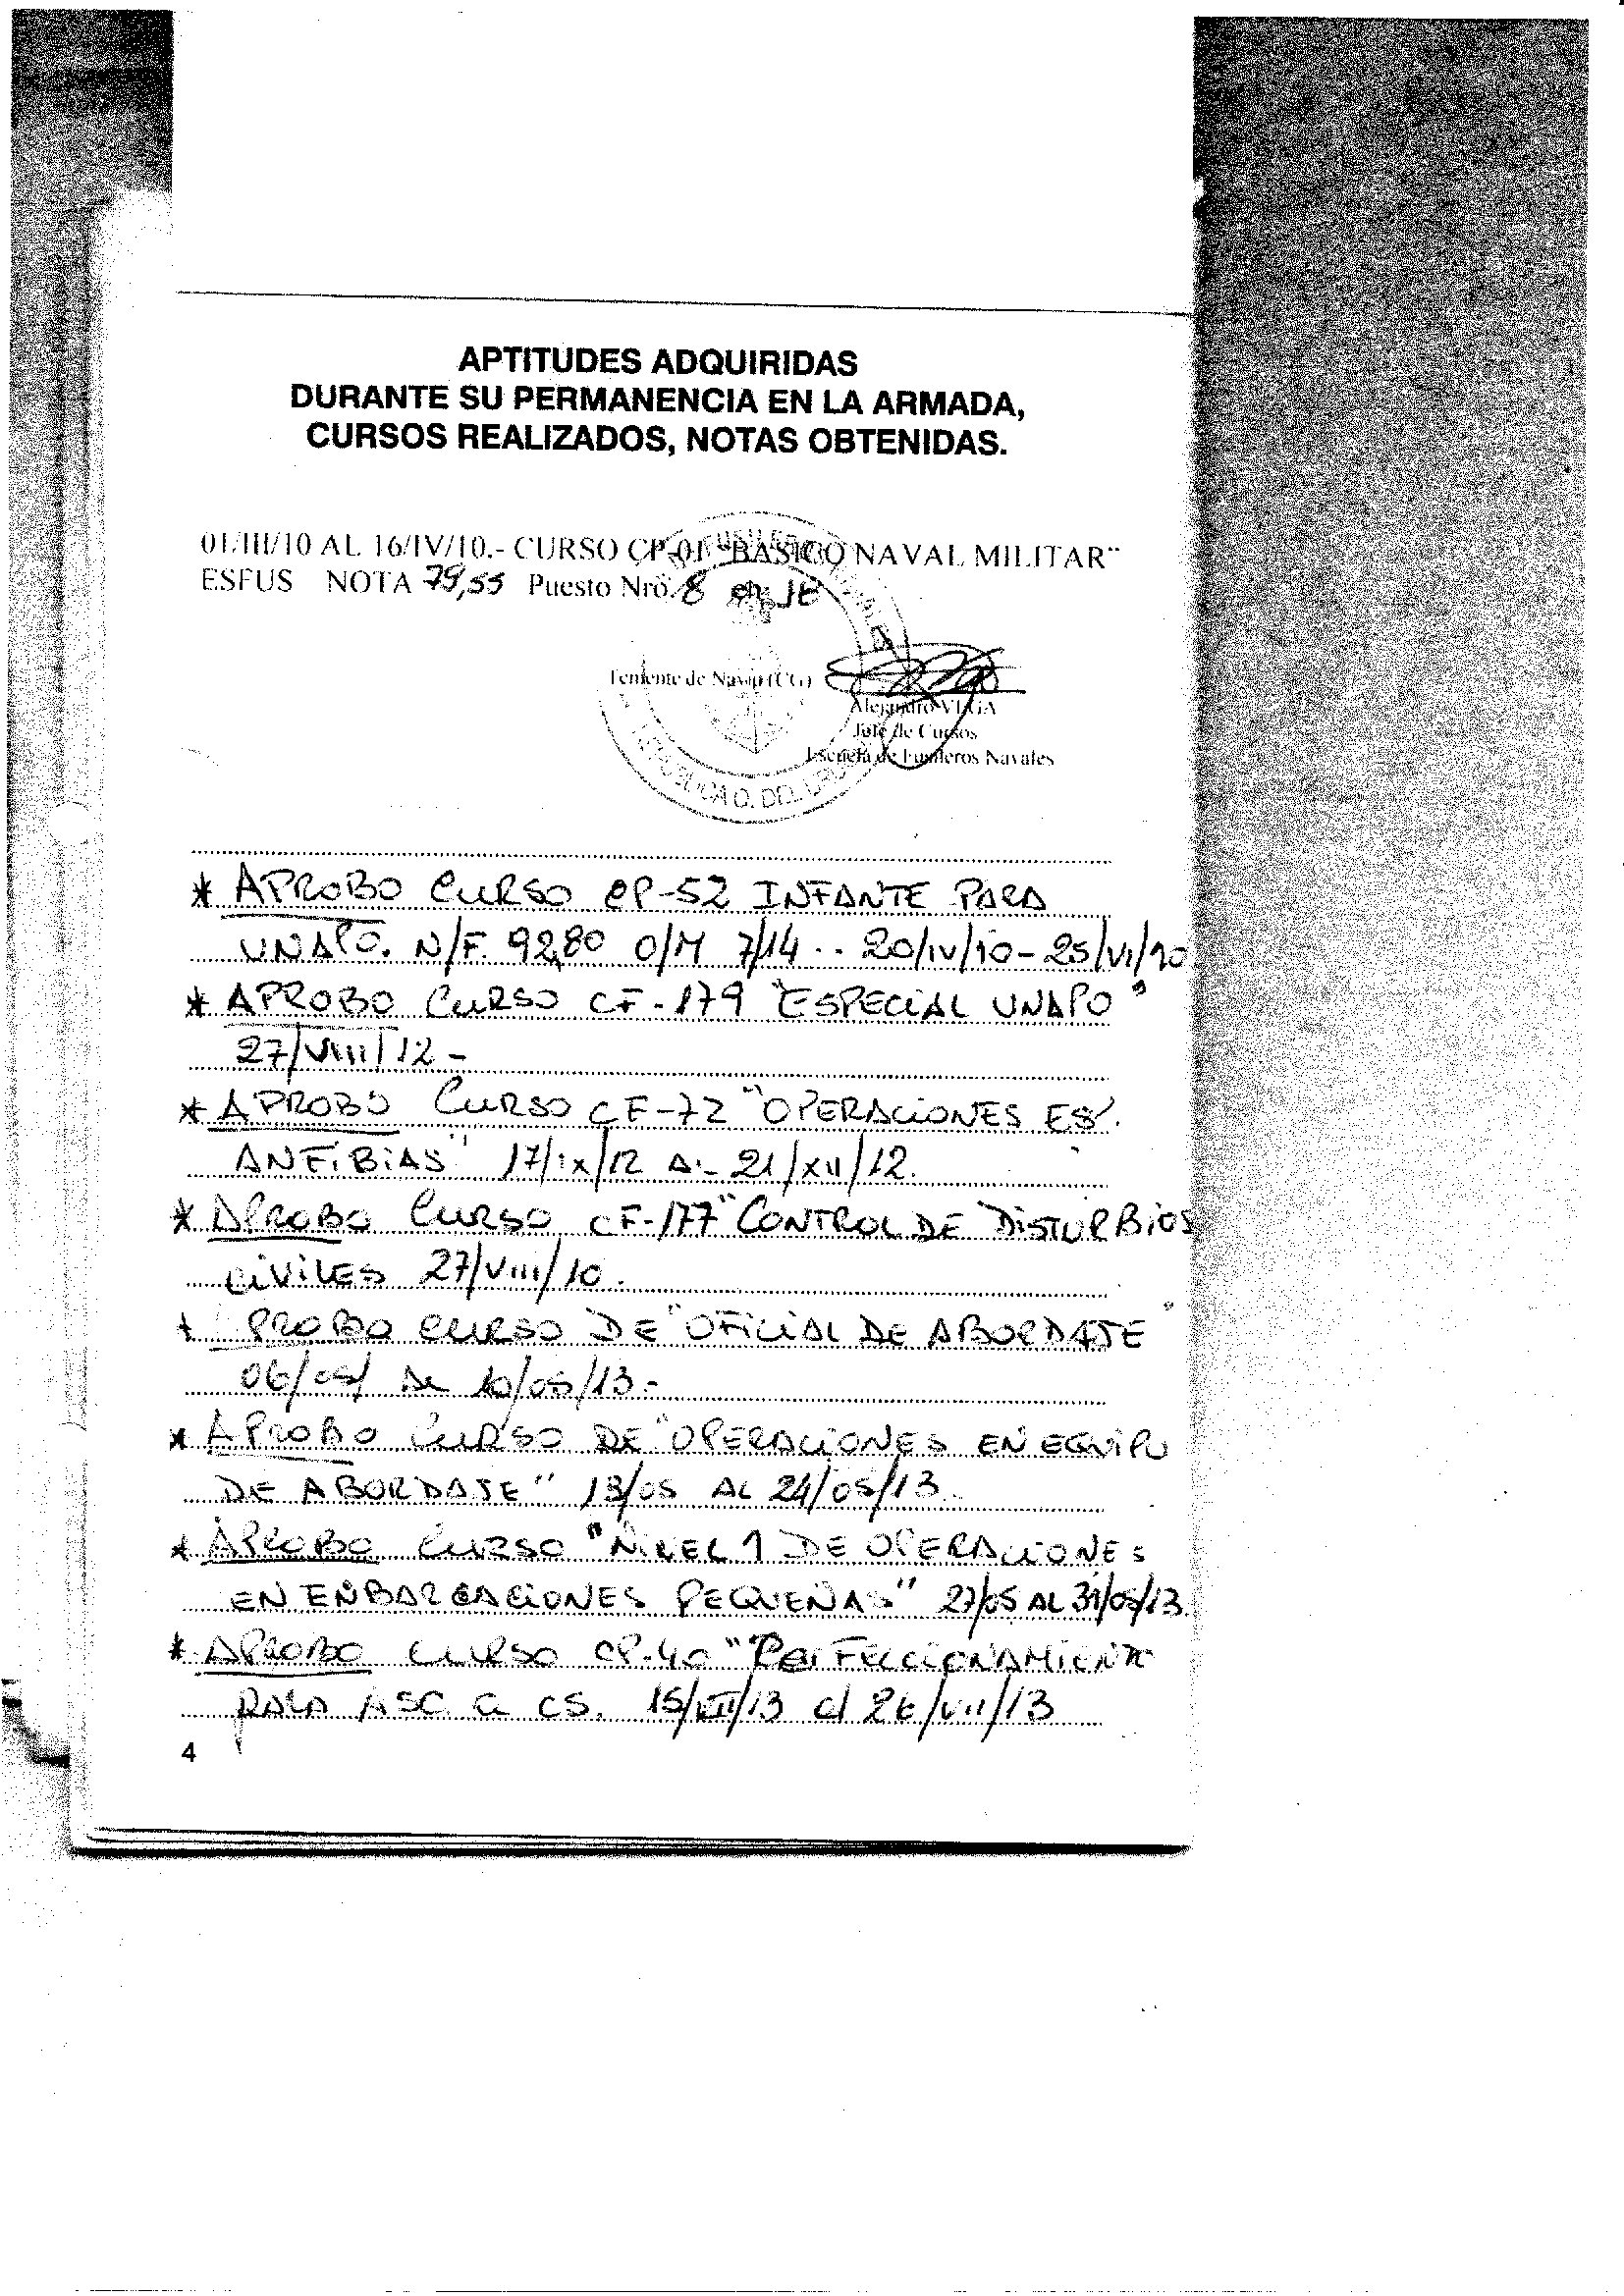 APTITUDES ADQUIRIDAS
DURANTE SU PERMANENCIA EN LA ARMADA,
CURSOS REALIZADOS, NOTAS OBTENIDAS.
01/III/10 AL 16/IV/10.- CURSO CP-01 "BASICO NAVAL MILITAR"
ESFUS NOTA 79,55 Puesto Nro. 8 en
Teniente de Navío (CG)
Alejandro VEGA
Jefe de Cursos
Escuela de Fusileros Navales
REPUBLICA O. DEL
* APROBO CURSO CP-52 INFANTE PARA
UNAPO. N/F. 92,80 O/M 7/14 .. 20/IV/10 - 25/VI/10
* APROBO CURSO CF-179 "ESPECIAL UNAPO"
27/VIII/12 -
* APROBO CURSO CF-72 "OPERACIONES ES.
ANFIBIAS" 17/IX/12 AL 21/XII/12.
* APROBO CURSO CF-177 "CONTROL DE DISTURBIOS
CIVILES 27/VIII/10.
* PROBO CURSO DE "OFICIAL DE ABORDAJE"
06/05/ AL 10/05/13.-
* APROBO CURSO DE "OPERACIONES EN EQUIPO
DE ABORDAJE" 13/05 AL 24/05/13.
* APROBO CURSO "NIVEL 1 DE OPERACIONES
EN EMBARCACIONES PEQUEÑAS" 27/05 AL 31/05/13.
* APROBO CURSO CP-40 "PERFECCIONAMIENTO
PARA ASC a CS. 15/VII/13 al 26/VII/13
4